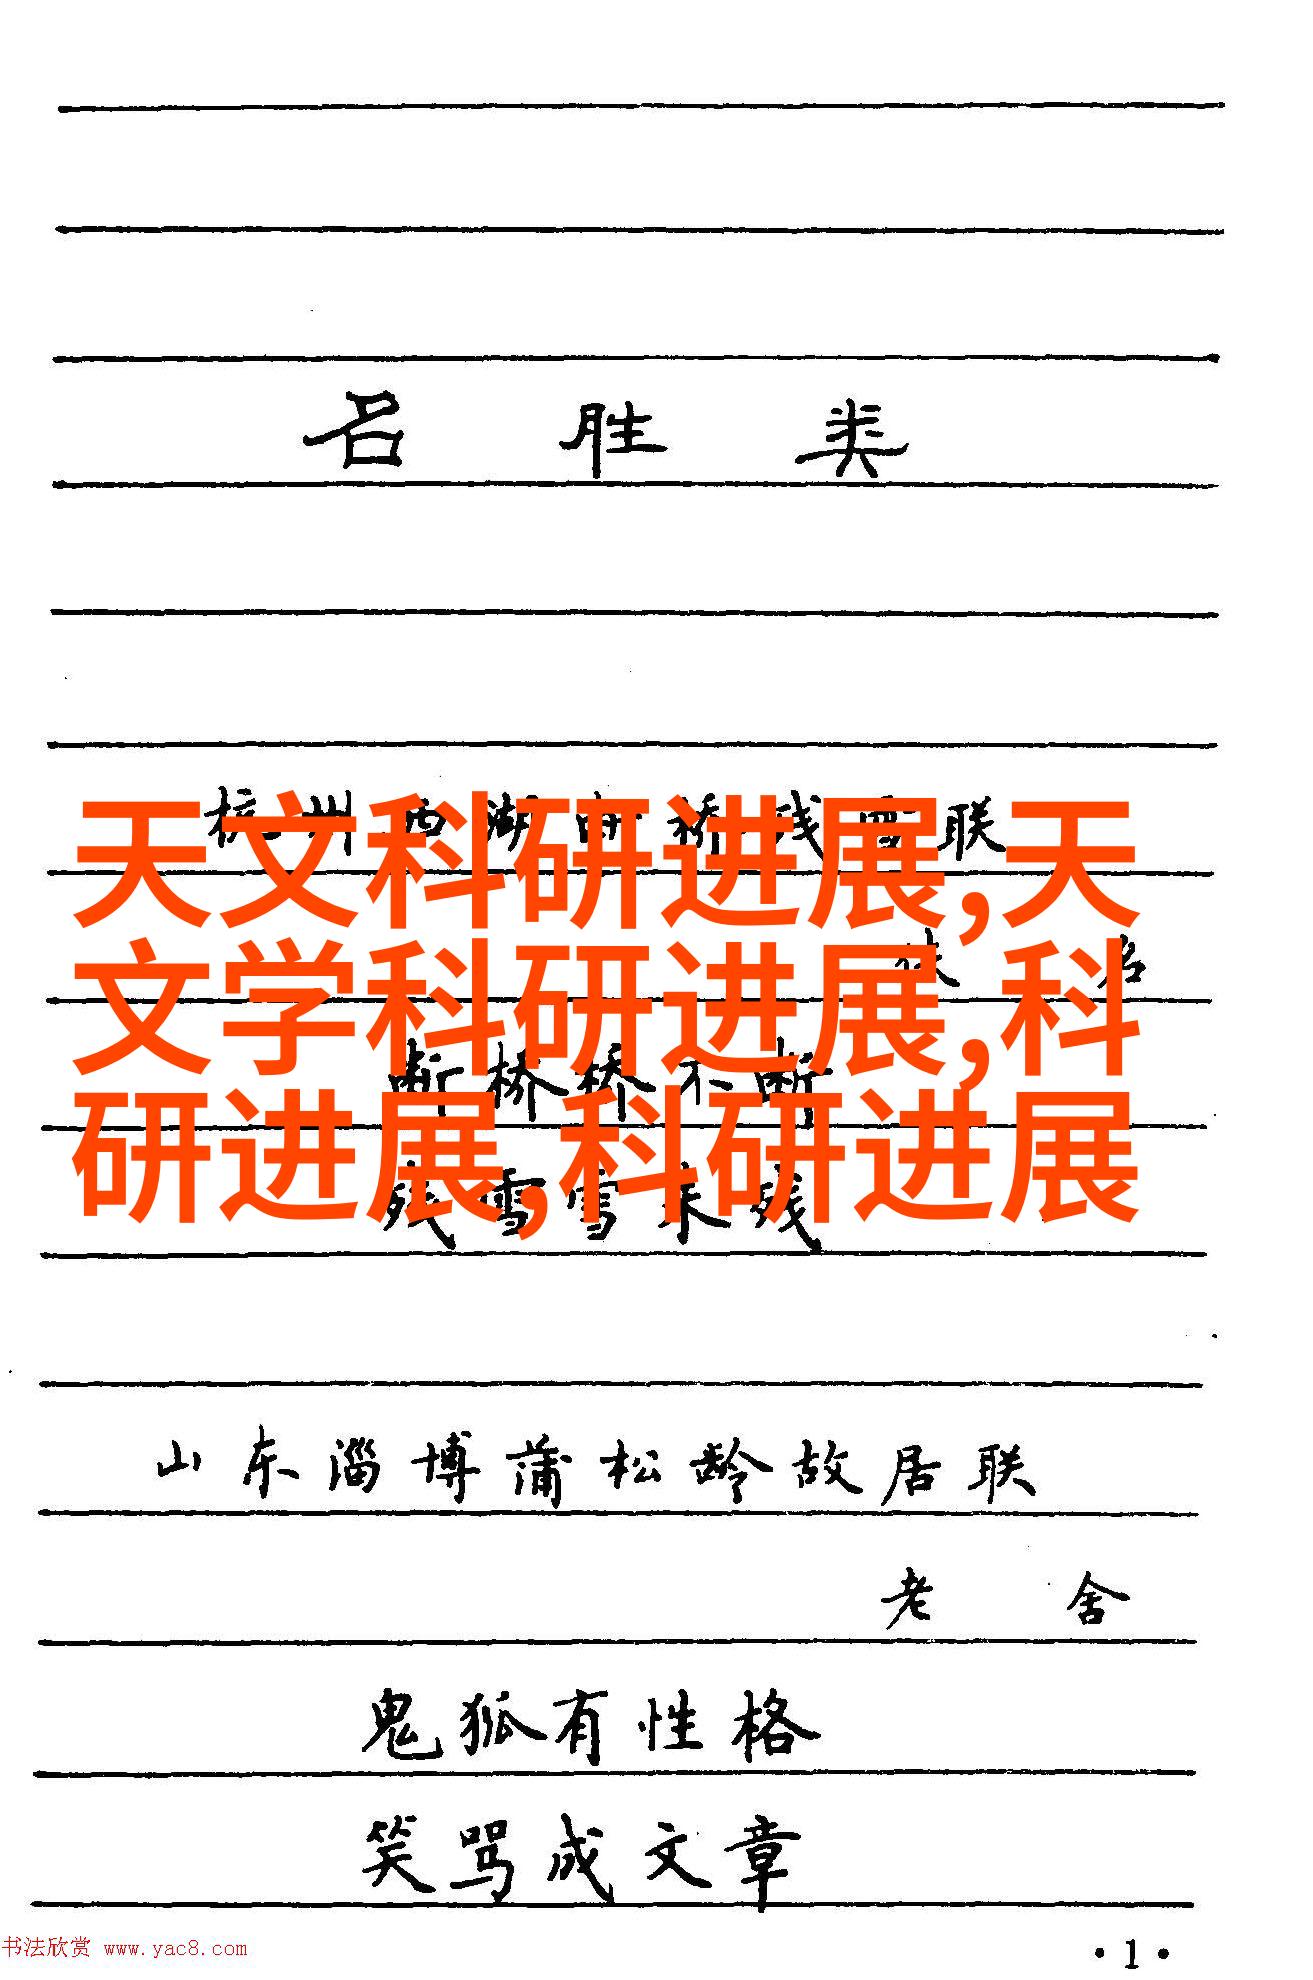 名胜类
杭州西湖断桥残雪联
天文科研进展,天
佚名
文学科研进展,科
断桥桥不断
研进展,科研进展
残雪雪未残
山东淄博蒲松龄故居联
老舍
鬼狐有性格
笑骂成文章
书法欣赏 www.yac8.com
·1·